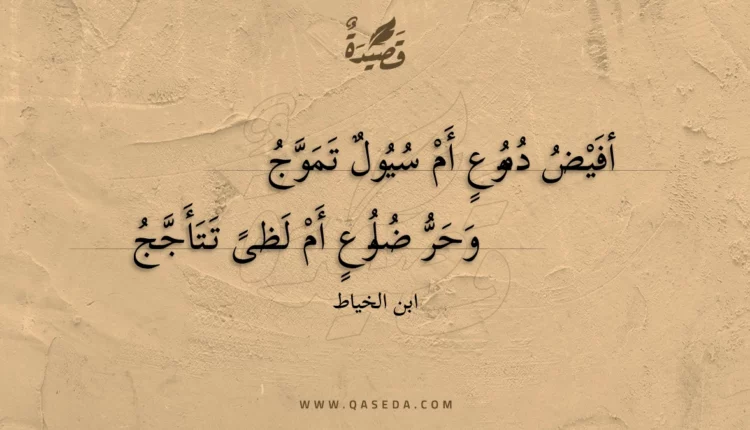 قَصِيْدَةٌ
أَفَيْضُ دُمُوُعٍ أَمْ سُيُولٌ تَمَوَّجُ
وَحَرُّ ضُلُوُعٍ أَمْ لَظىً تَتَأَجَّجُ
ابن الخياط
WWW.QASEDA.COM